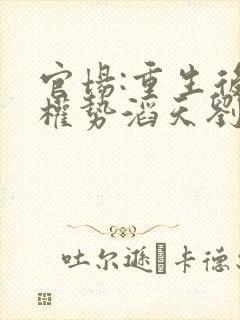 官場:重生後
權勢滔天劉
吐尔遜·卡德